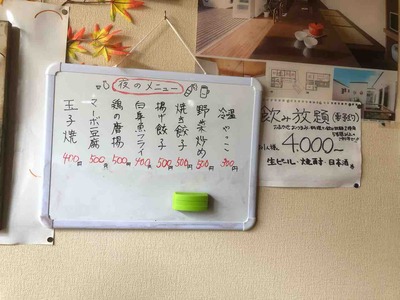 夜のメニュー
冷温やっこ 300円
野菜炒め 500円
焼き餃子 500円
揚げ餃子 500円
白身魚フライ 400円
鶏の唐揚 500円
マーボ豆腐 500円
玉子焼 400円
飲み放題(要予約)
4.000〜
生ビール・焼酎・日本酒